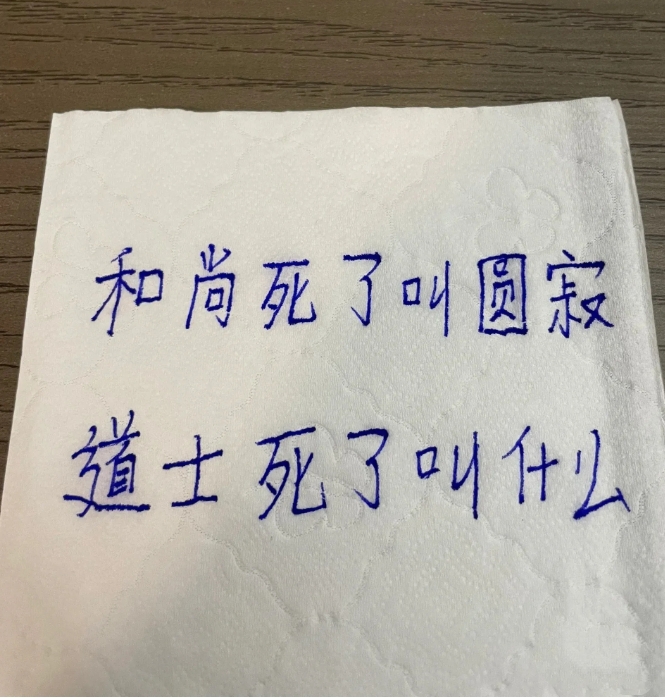 和尚死了叫圆寂
道士死了叫什么